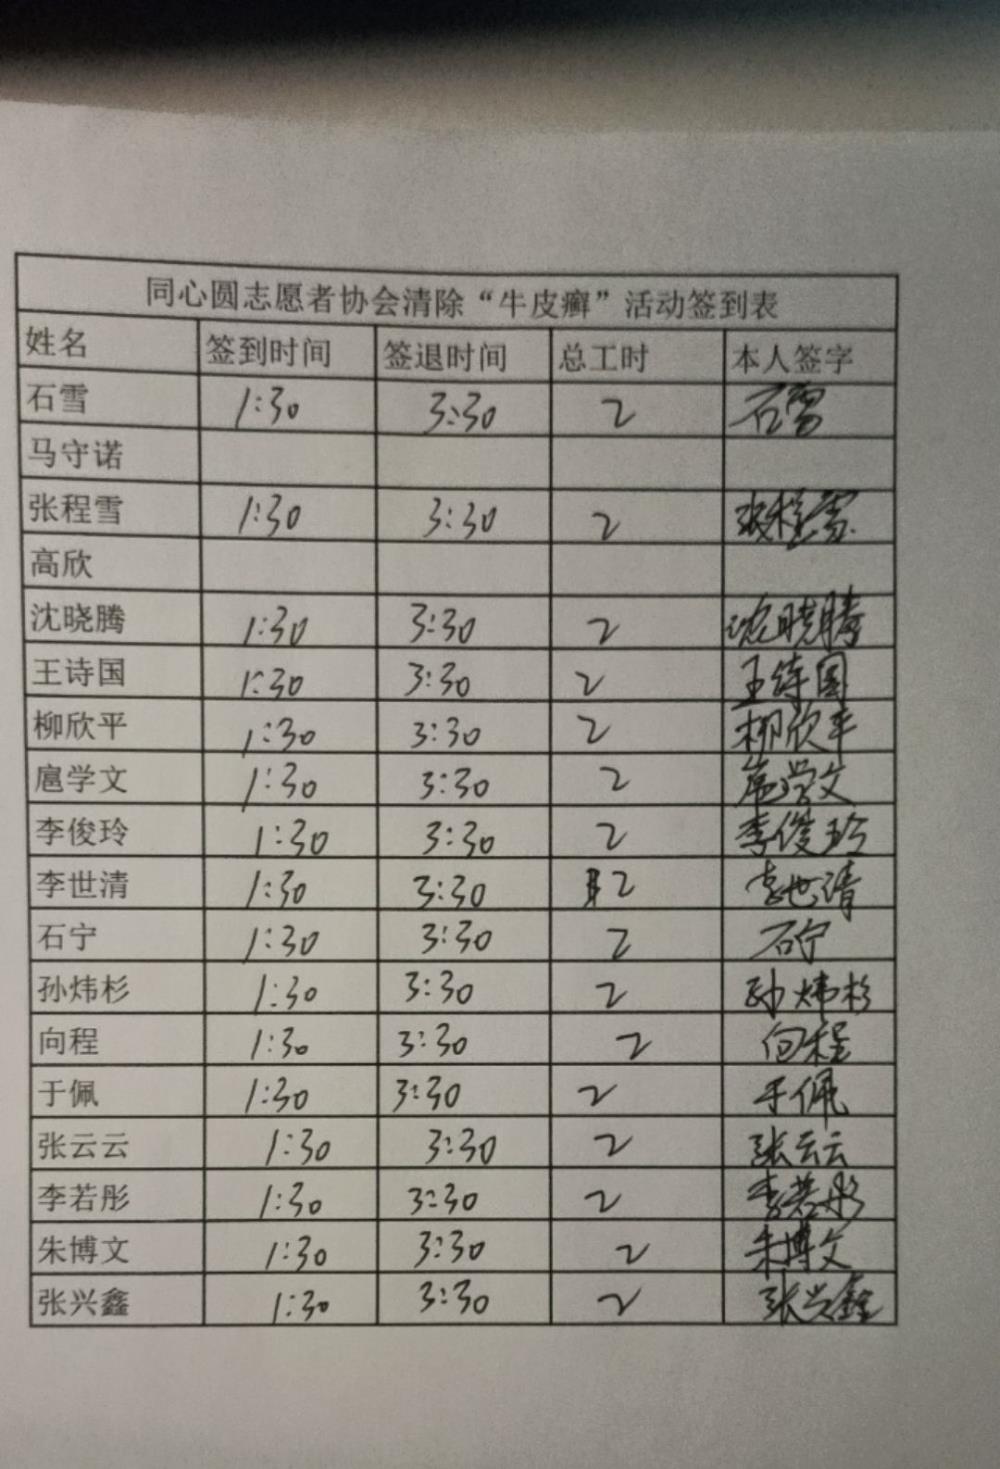 同心圆志愿者协会清除“牛皮癣”活动签到表
姓名 签到时间 签退时间 总工时 本人签字
石雪 1:30 3:30 2 石雪
马守诺
张程雪 1:30 3:30 2 张程雪
高欣
沈晓腾 1:30 3:30 2 沈晓腾
王诗国 1:30 3:30 2 王诗国
柳欣平 1:30 3:30 2 柳欣平
扈学文 1:30 3:30 2 扈学文
李俊玲 1:30 3:30 2 李俊玲
李世清 1:30 3:30 2 李世清
石宁 1:30 3:30 2 石宁
孙炜杉 1:30 3:30 2 孙炜杉
向程 1:30 3:30 2 向程
于佩 1:30 3:30 2 于佩
张云云 1:30 3:30 2 张云云
李若彤 1:30 3:30 2 李若彤
朱博文 1:30 3:30 2 朱博文
张兴鑫 1:30 3:30 2 张兴鑫